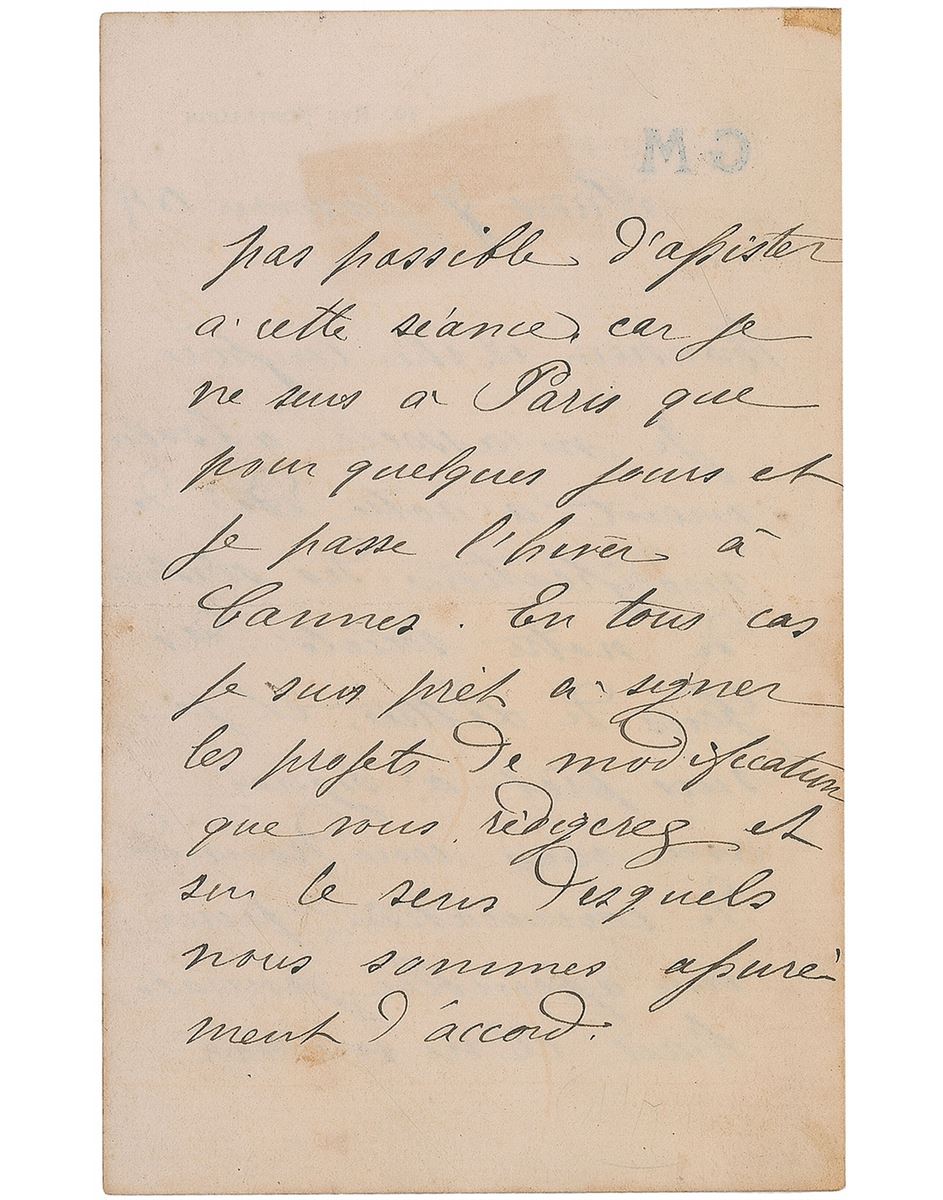 pas possible d'assister
à cette séance, car je
ne suis à Paris que
pour quelques jours et
je passe l'hiver à
Cannes. En tous cas
je suis prêt à signer
les projets de modification
que vous rédigerez et
sur le sens desquels
nous sommes assuré-
ment d'accord.